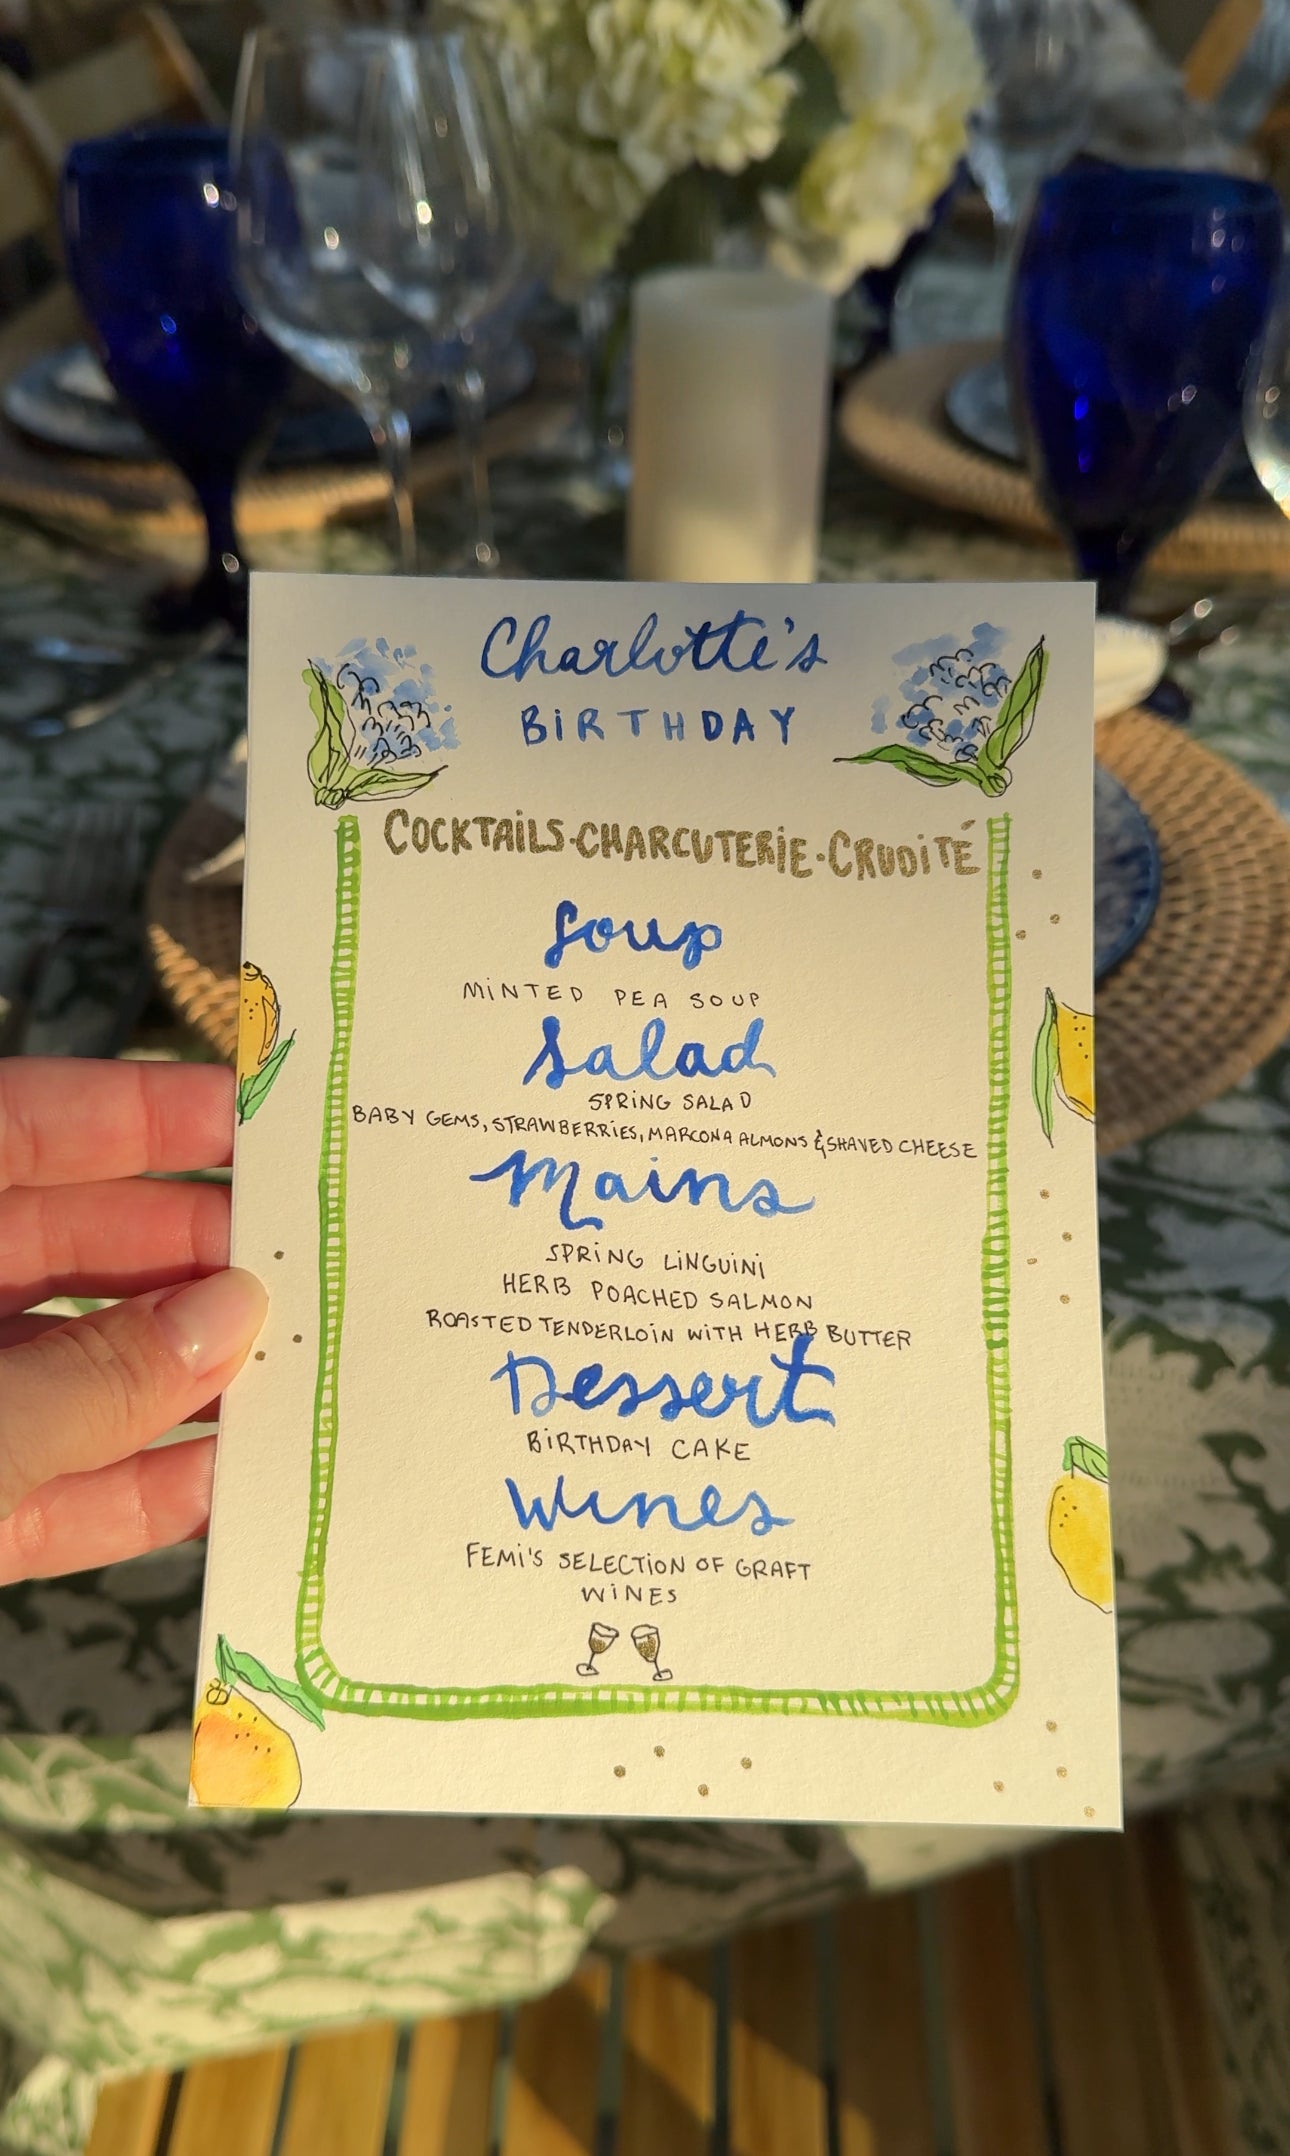 Charlotte's
BIRTHDAY
COCKTAILS·CHARCUTERIE·CRUDITÉ
Soup
MINTED PEA SOUP
Salad
SPRING SALAD
BABY GEMS, STRAWBERRIES, MARCONA ALMONS & SHAVED CHEESE
Mains
SPRING LINGUINI
HERB POACHED SALMON
ROASTED TENDERLOIN WITH HERB BUTTER
Dessert
BIRTHDAY CAKE
Wines
FEMI'S SELECTION OF GRAFT
WINES